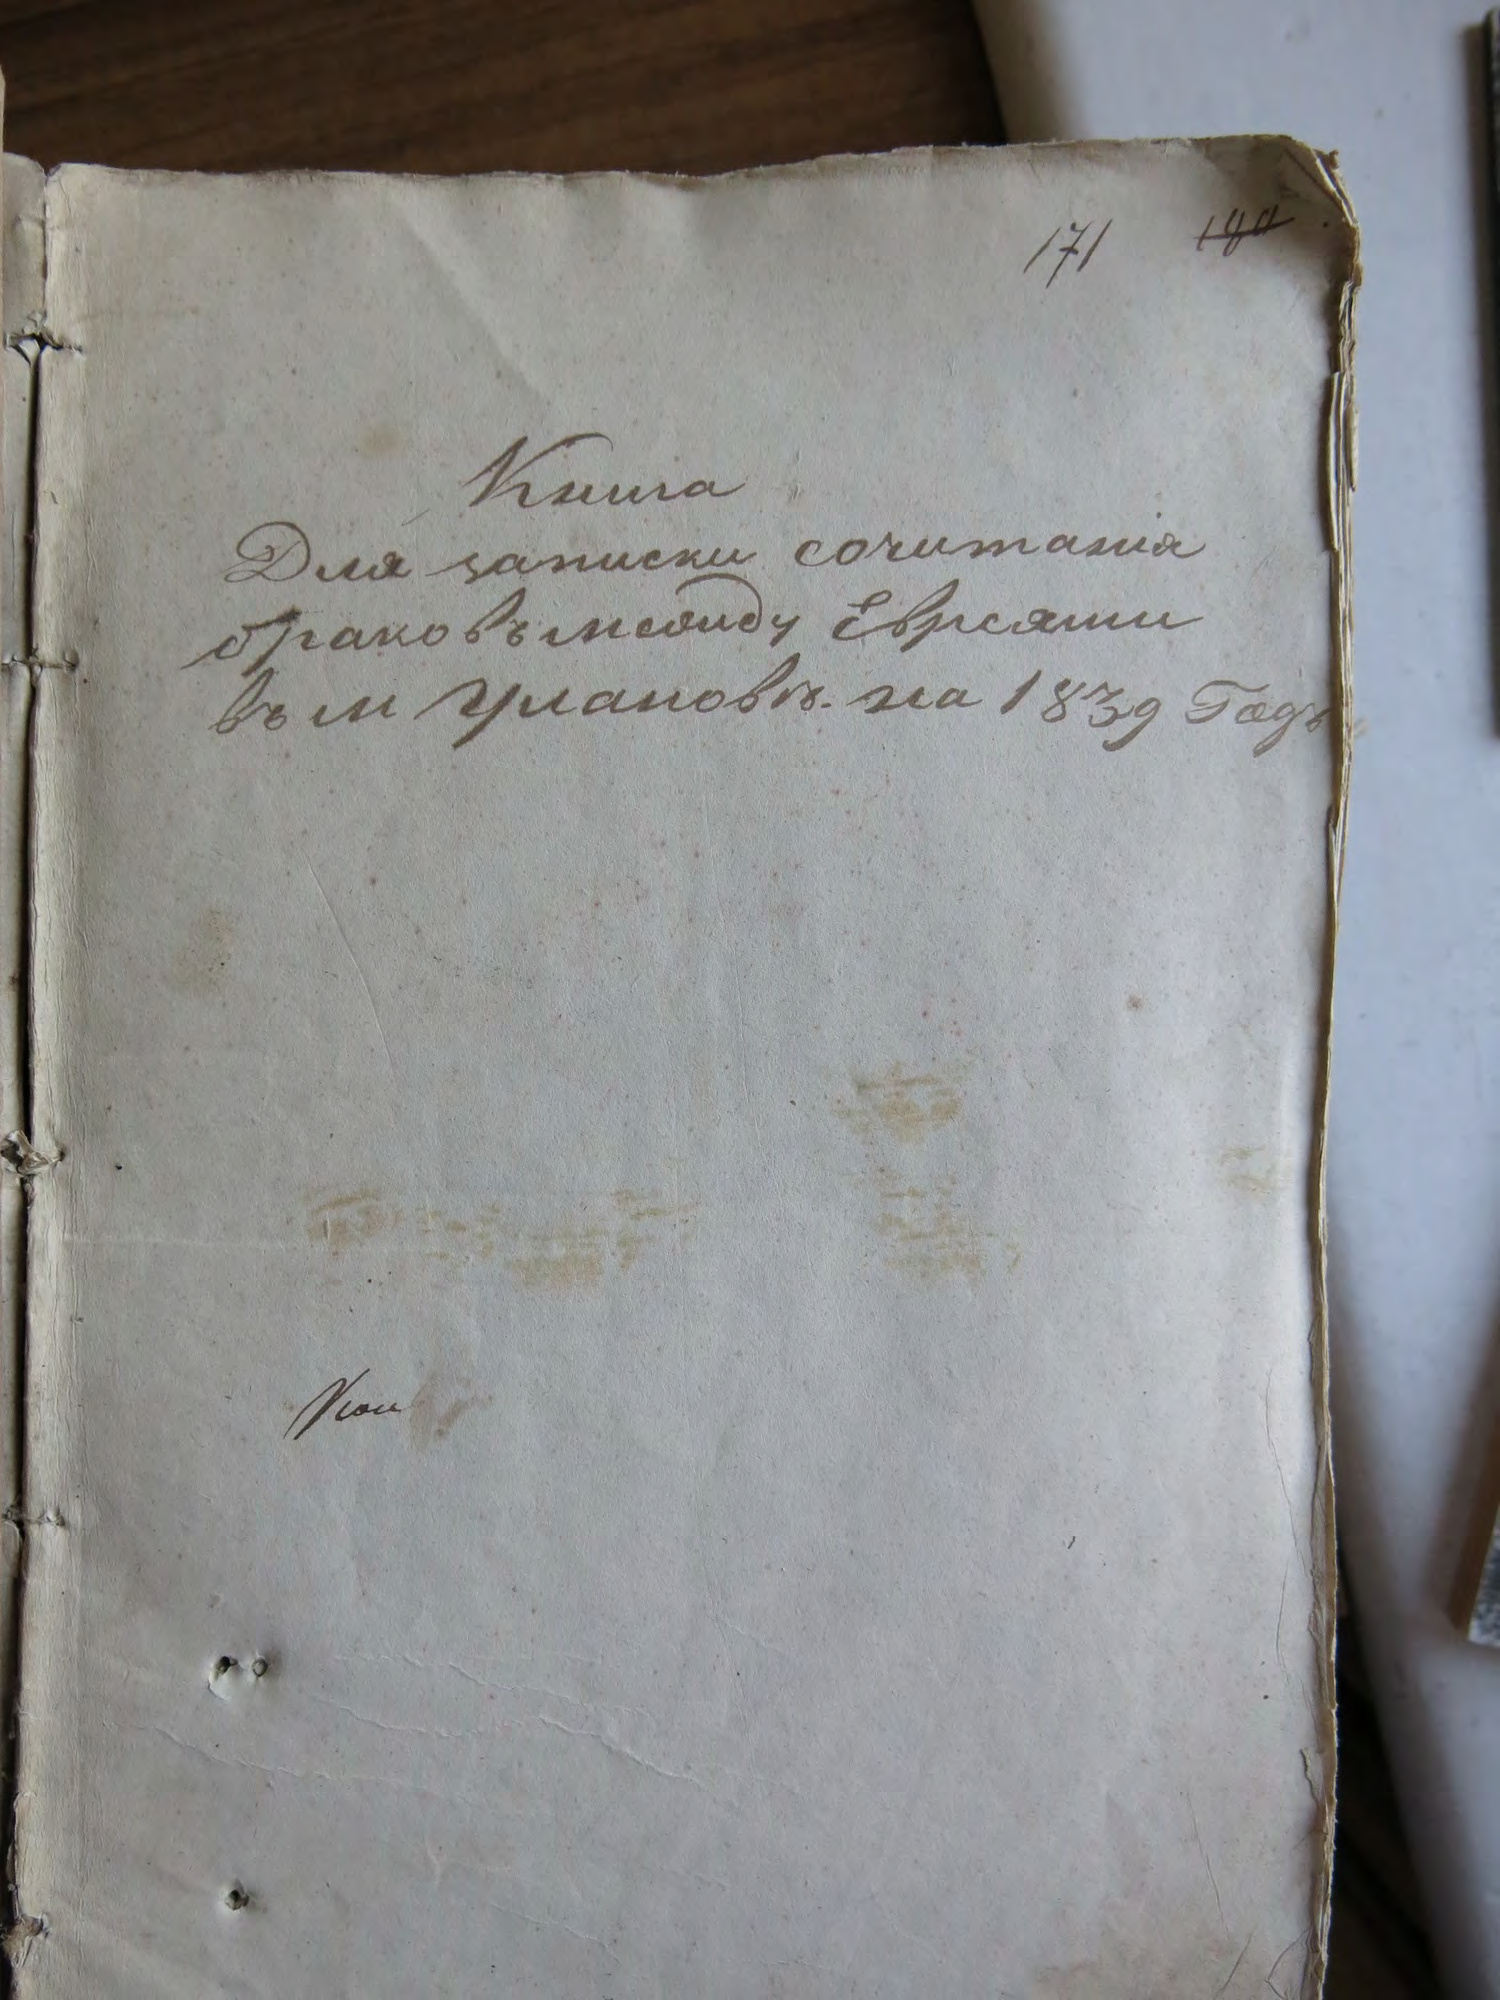 171 180
Книга
Для записки сочитанія
браковъ между Евреями
въ м Улановѣ. на 1839 Годъ